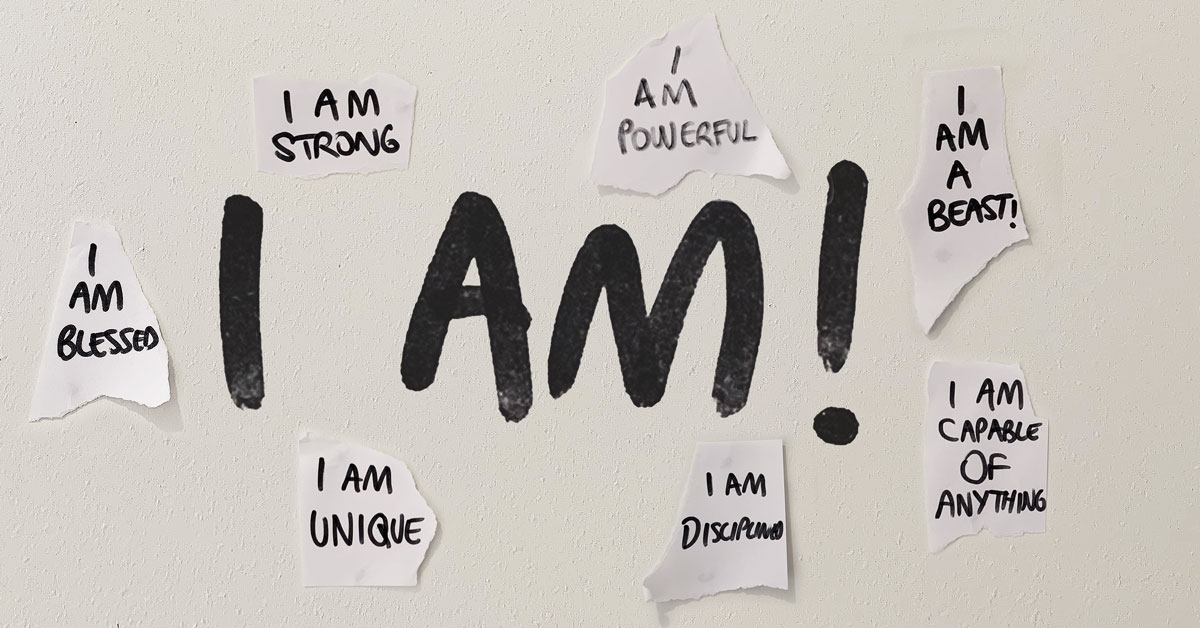 I AM
STRONG
I
AM
POWERFUL
I
AM
A
BEAST!
I
AM
BLESSED
I AM!
I AM
CAPABLE
OF
ANYTHING
I AM
UNIQUE
I AM
DISCIPLINED